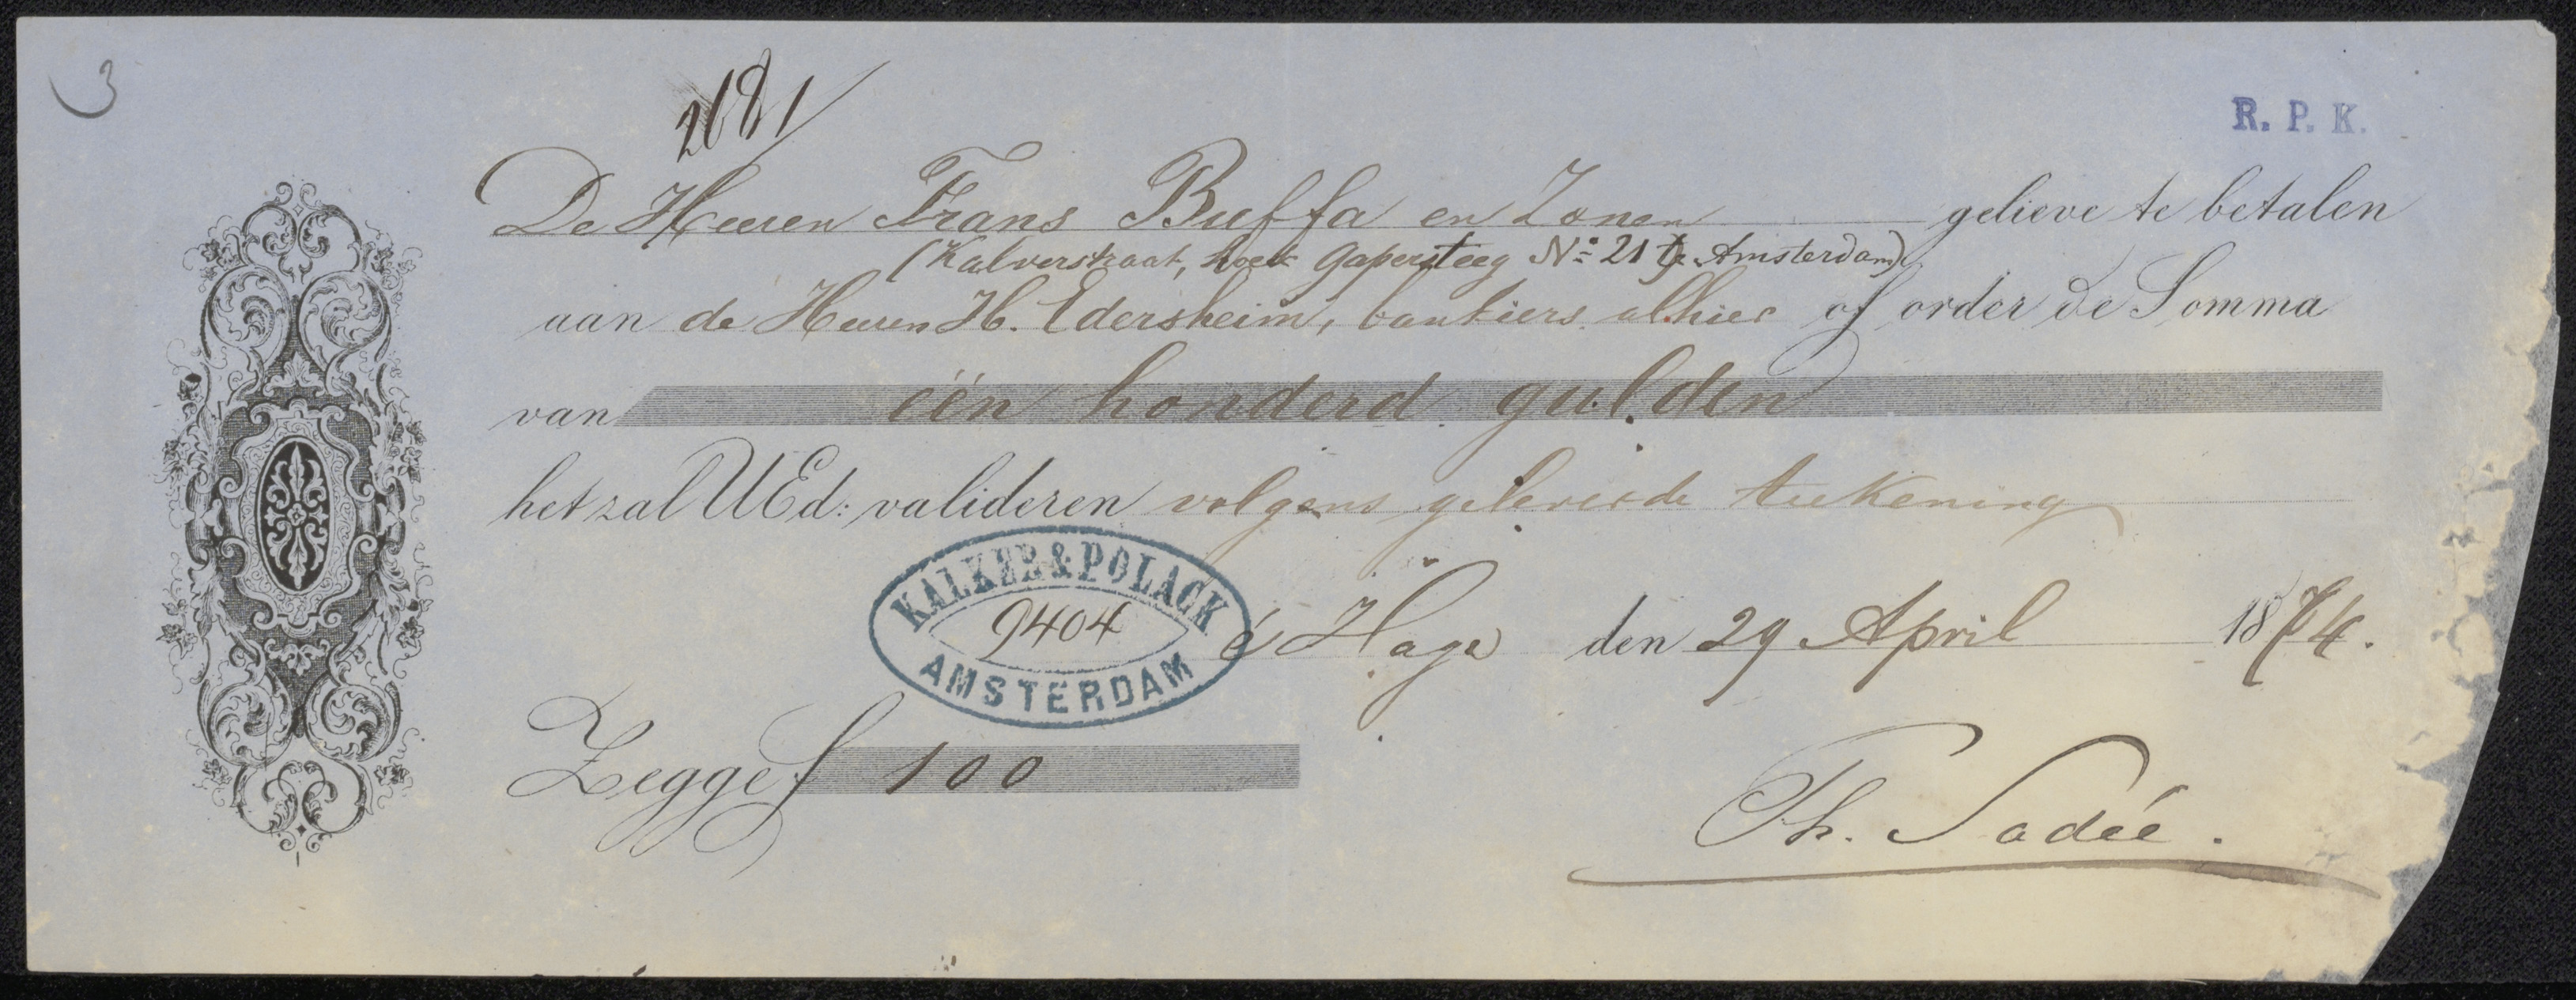 3
2181
R. P. K.
De Heeren Frans Buffa en Zonen gelieve te betalen
(Kalverstraat, hoek Gapersteeg No 21 te Amsterdam)
aan de Heeren H. Edersheim, bankiers alhier of order de Somma
van één honderd gulden
het zal UEd: valideren volgens geleverde teekening
KALKER & POLACK
9404
AMSTERDAM
s Hage den 29 April 1874.
Zegge f 100
Ph. Sadée.